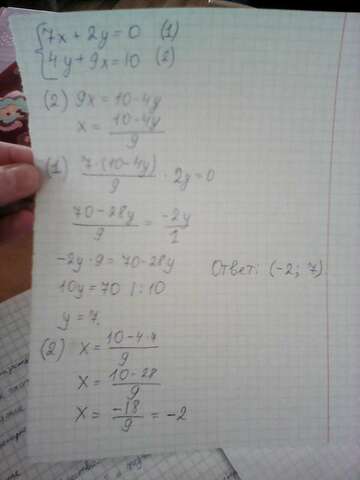 7x + 2y = 0 (1)
4y + 9x = 10 (2)
(2) 9x = 10 - 4y
x = \frac{10 - 4y}{9}
(1) \frac{7 \cdot (10 - 4y)}{9} \cdot 2y = 0
\frac{70 - 28y}{9} = \frac{-2y}{1}
-2y \cdot 9 = 70 - 28y
10y = 70 | : 10
y = 7.
Ответ: (-2; 7).
(2) x = \frac{10 - 4 \cdot 7}{9}
x = \frac{10 - 28}{9}
x = \frac{-18}{9} = -2